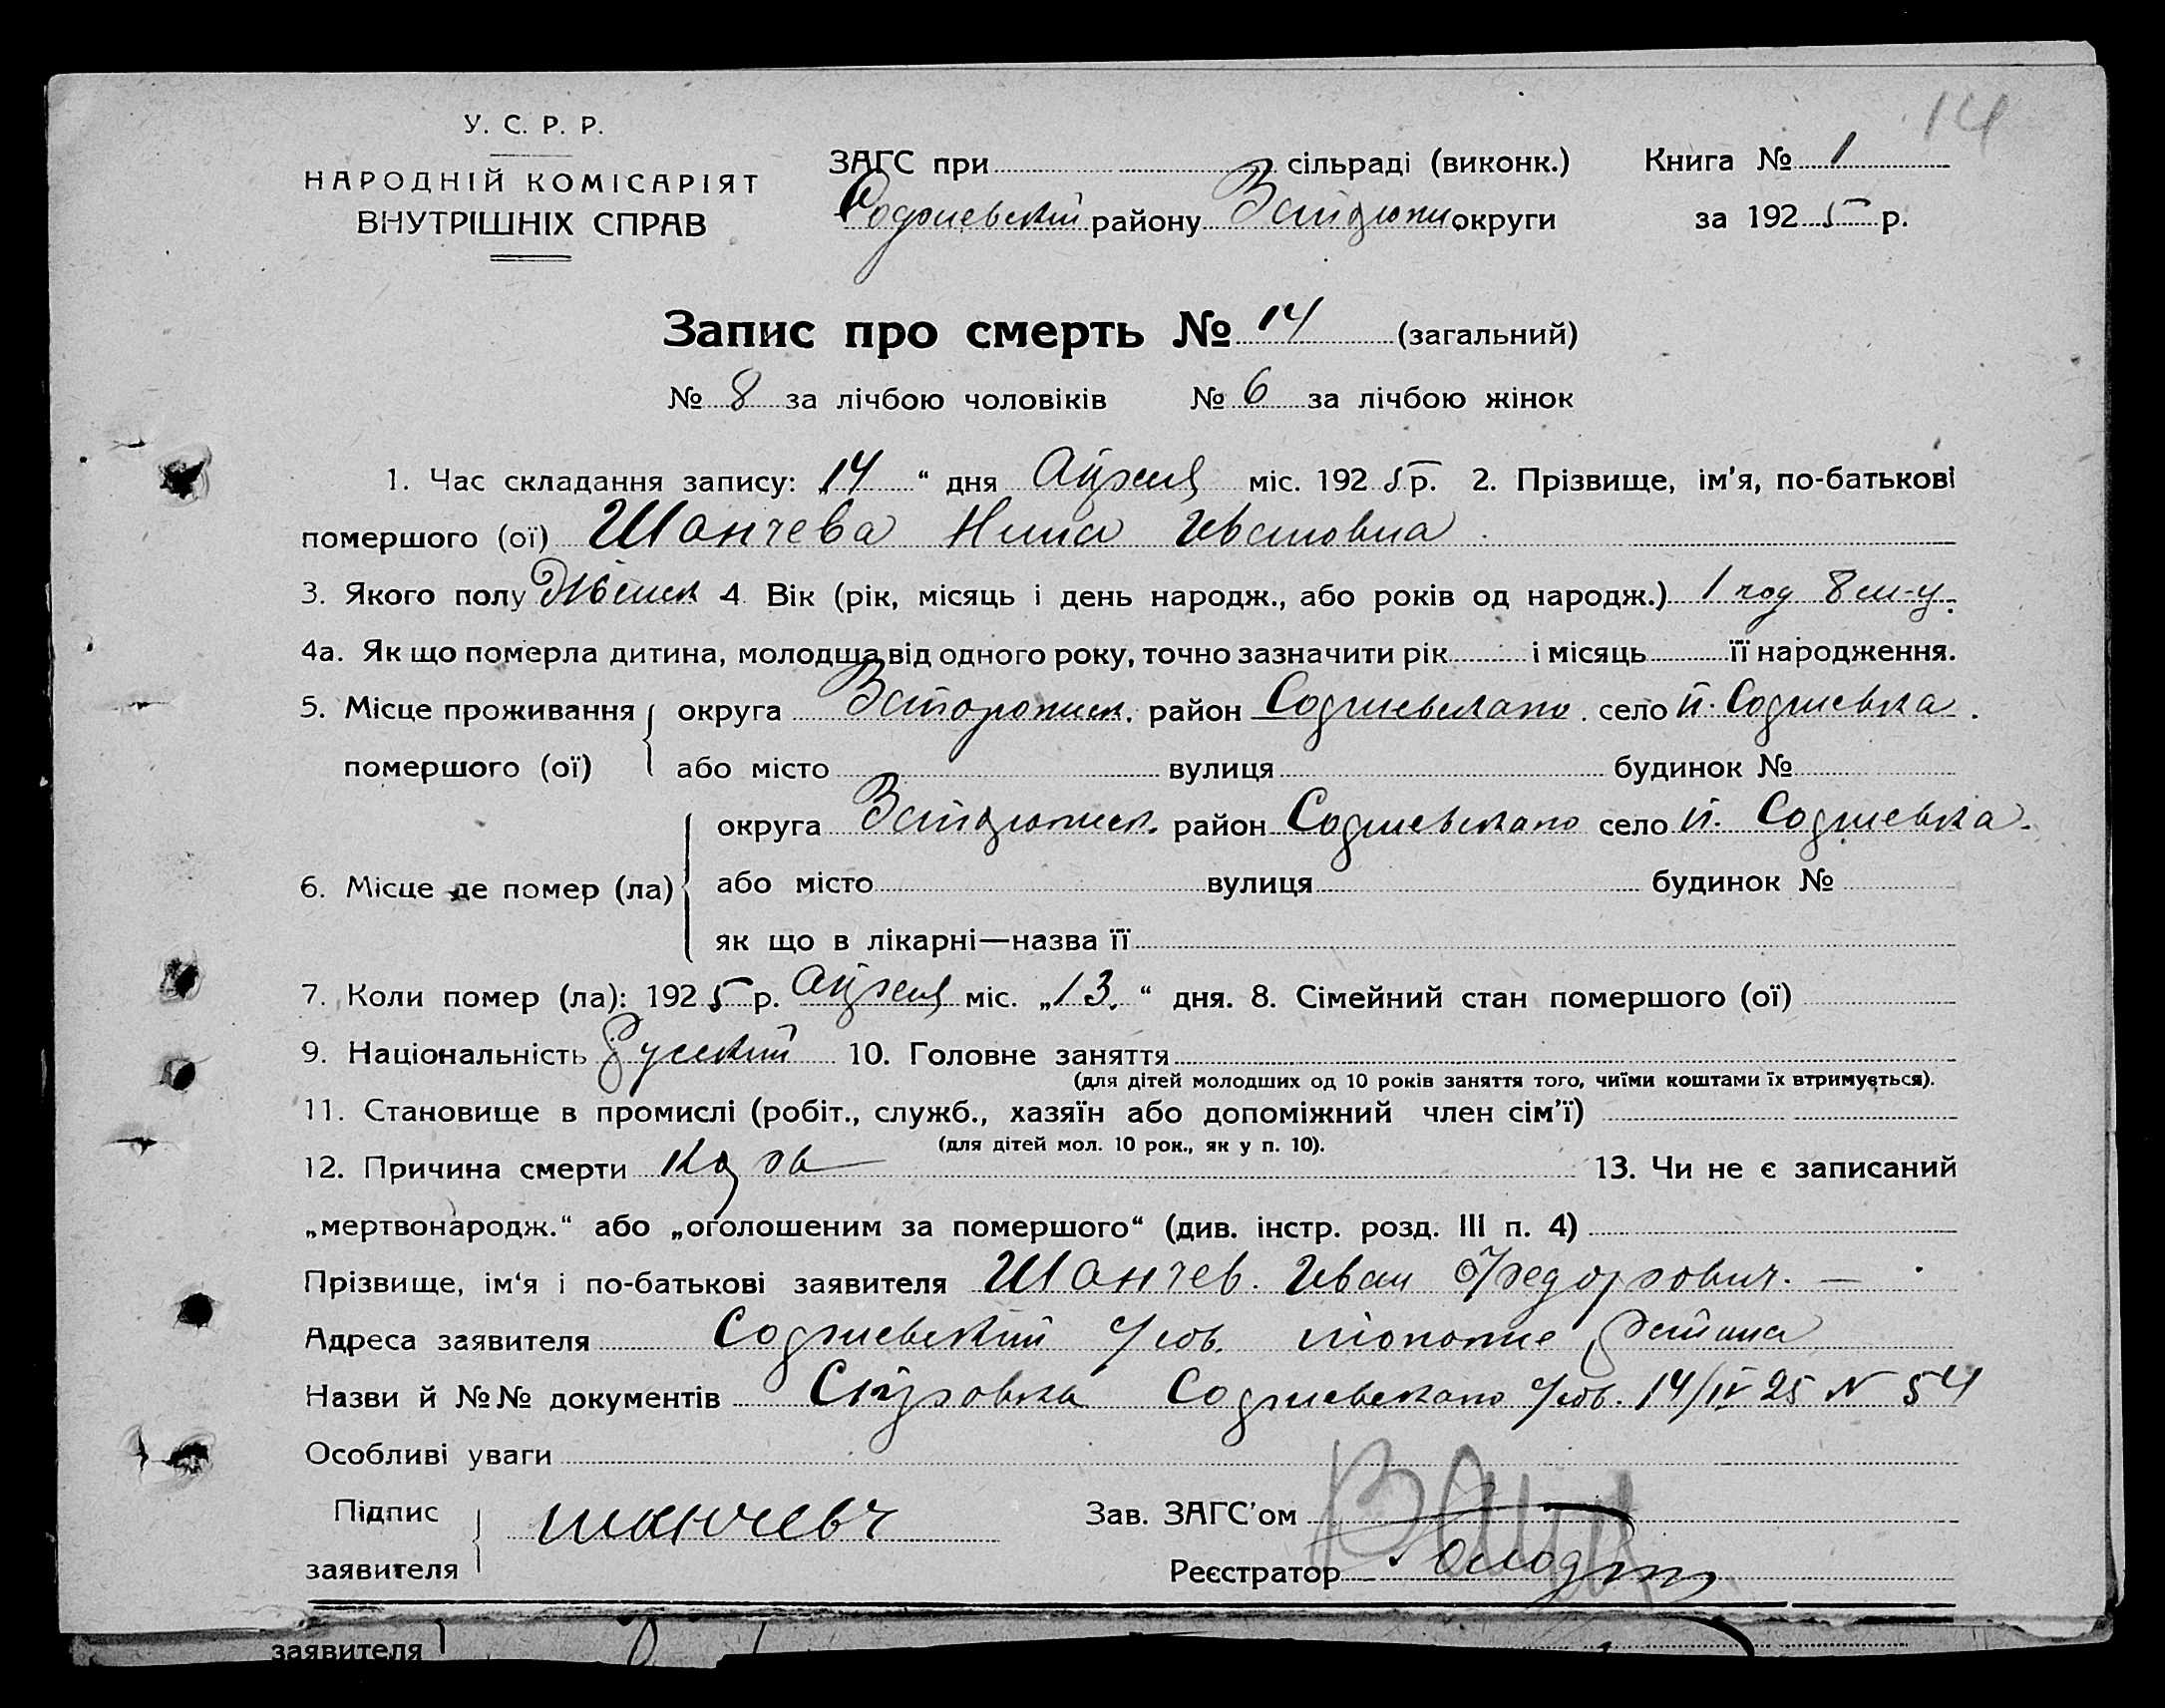 14
У. С. Р. Р.
НАРОДНІЙ КОМІСАРІЯТ
ВНУТРІШНІХ СПРАВ
ЗАГС при сільраді (виконк.) Книга № 1
району округи за 192 5 р.
Запис про смерть № 14 (загальний)
№ 8 за лічбою чоловіків № 6 за лічбою жінок
1. Час складання запису: „14“ дня Апреля міс. 192 5 р. 2. Прізвище, ім'я, по-батькові
помершого (ої) Шанчева Нина Ивановна
3. Якого полу Женск 4. Вік (рік, місяць і день народж., або років од народж.) 1 год 8 м-ц.
4а. Як що померла дитина, молодща від одного року, точно зазначити рік і місяць її народження.
5. Місце проживання округа Запорожск. район село
помершого (ої) або місто вулиця будинок №
округа Запорожск. район село
6. Місце де помер (ла) або місто вулиця будинок №
як що в лікарні—назва її
7. Коли помер (ла): 192 5 р. Апреля міс. „13.“ дня. 8. Сімейний стан помершого (ої)
9. Національність Русский 10. Головне заняття
(для дітей молодших од 10 років заняття того, чиїми коштами їх втримується).
11. Становище в промислі (робіт., служб., хазяїн або допоміжний член сім'ї)
(для дітей мол. 10 рок., як у п. 10).
12. Причина смерти Корь 13. Чи не є записаний
„мертвонародж.“ або „оголошеним за помершого“ (див. інстр. розд. III п. 4)
Прізвище, ім'я і по-батькові заявителя Шанчев. Иван Федорович.
Адреса заявителя
Назви й №№ документів Справка 14/IV 25 N 54
Особливі уваги
Підпис Шанчевъ Зав. ЗАГС'ом
заявителя Реєстратор
заявителя